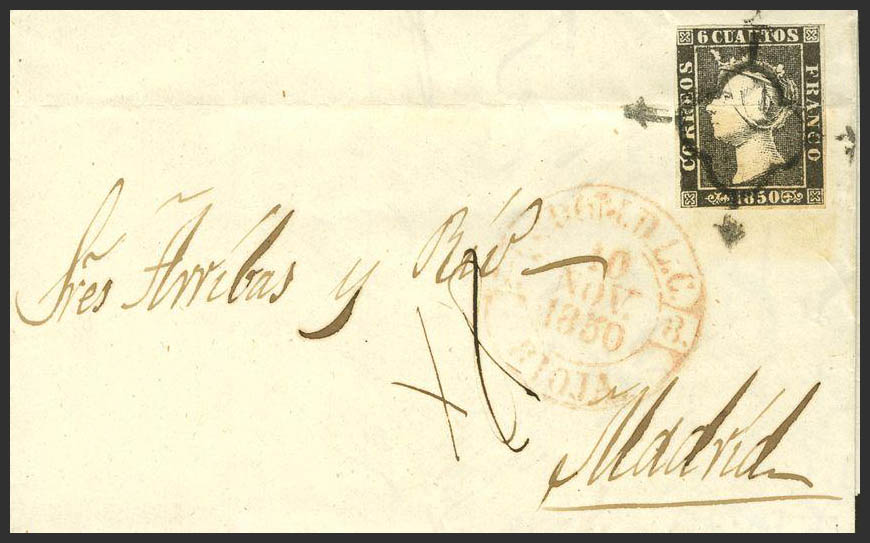 6 CUARTOS
CORREOS
FRANCO
1850
Sres Arribas y Rio
L.C.
10
NOV.
1850
8.
RIOJA
Madrid